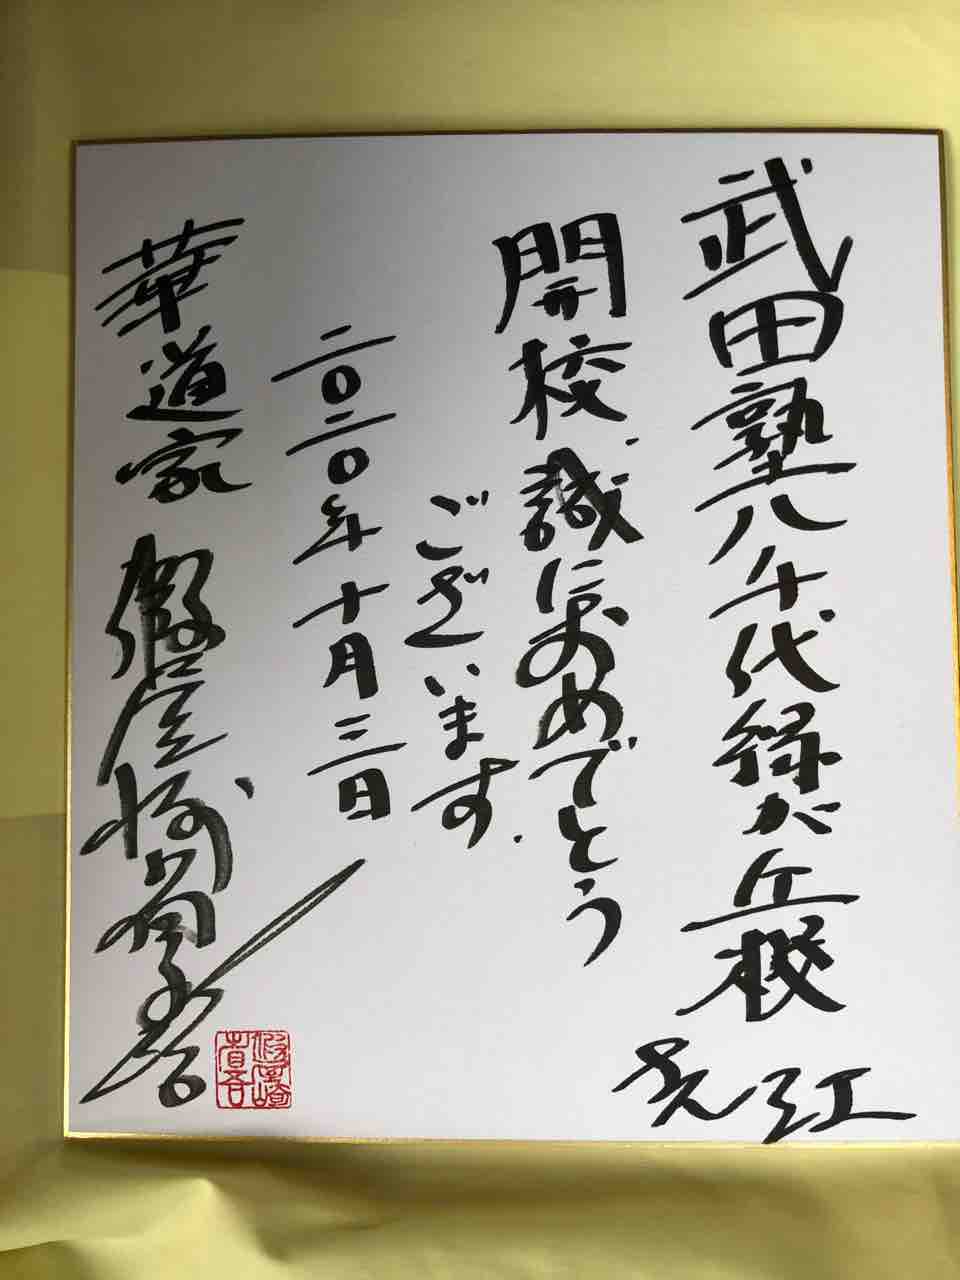 武田塾八千代緑が丘校
さん江
開校誠におめでとう
ございます
二〇二〇年十月三日
華道家 假屋崎省吾
假屋崎省吾